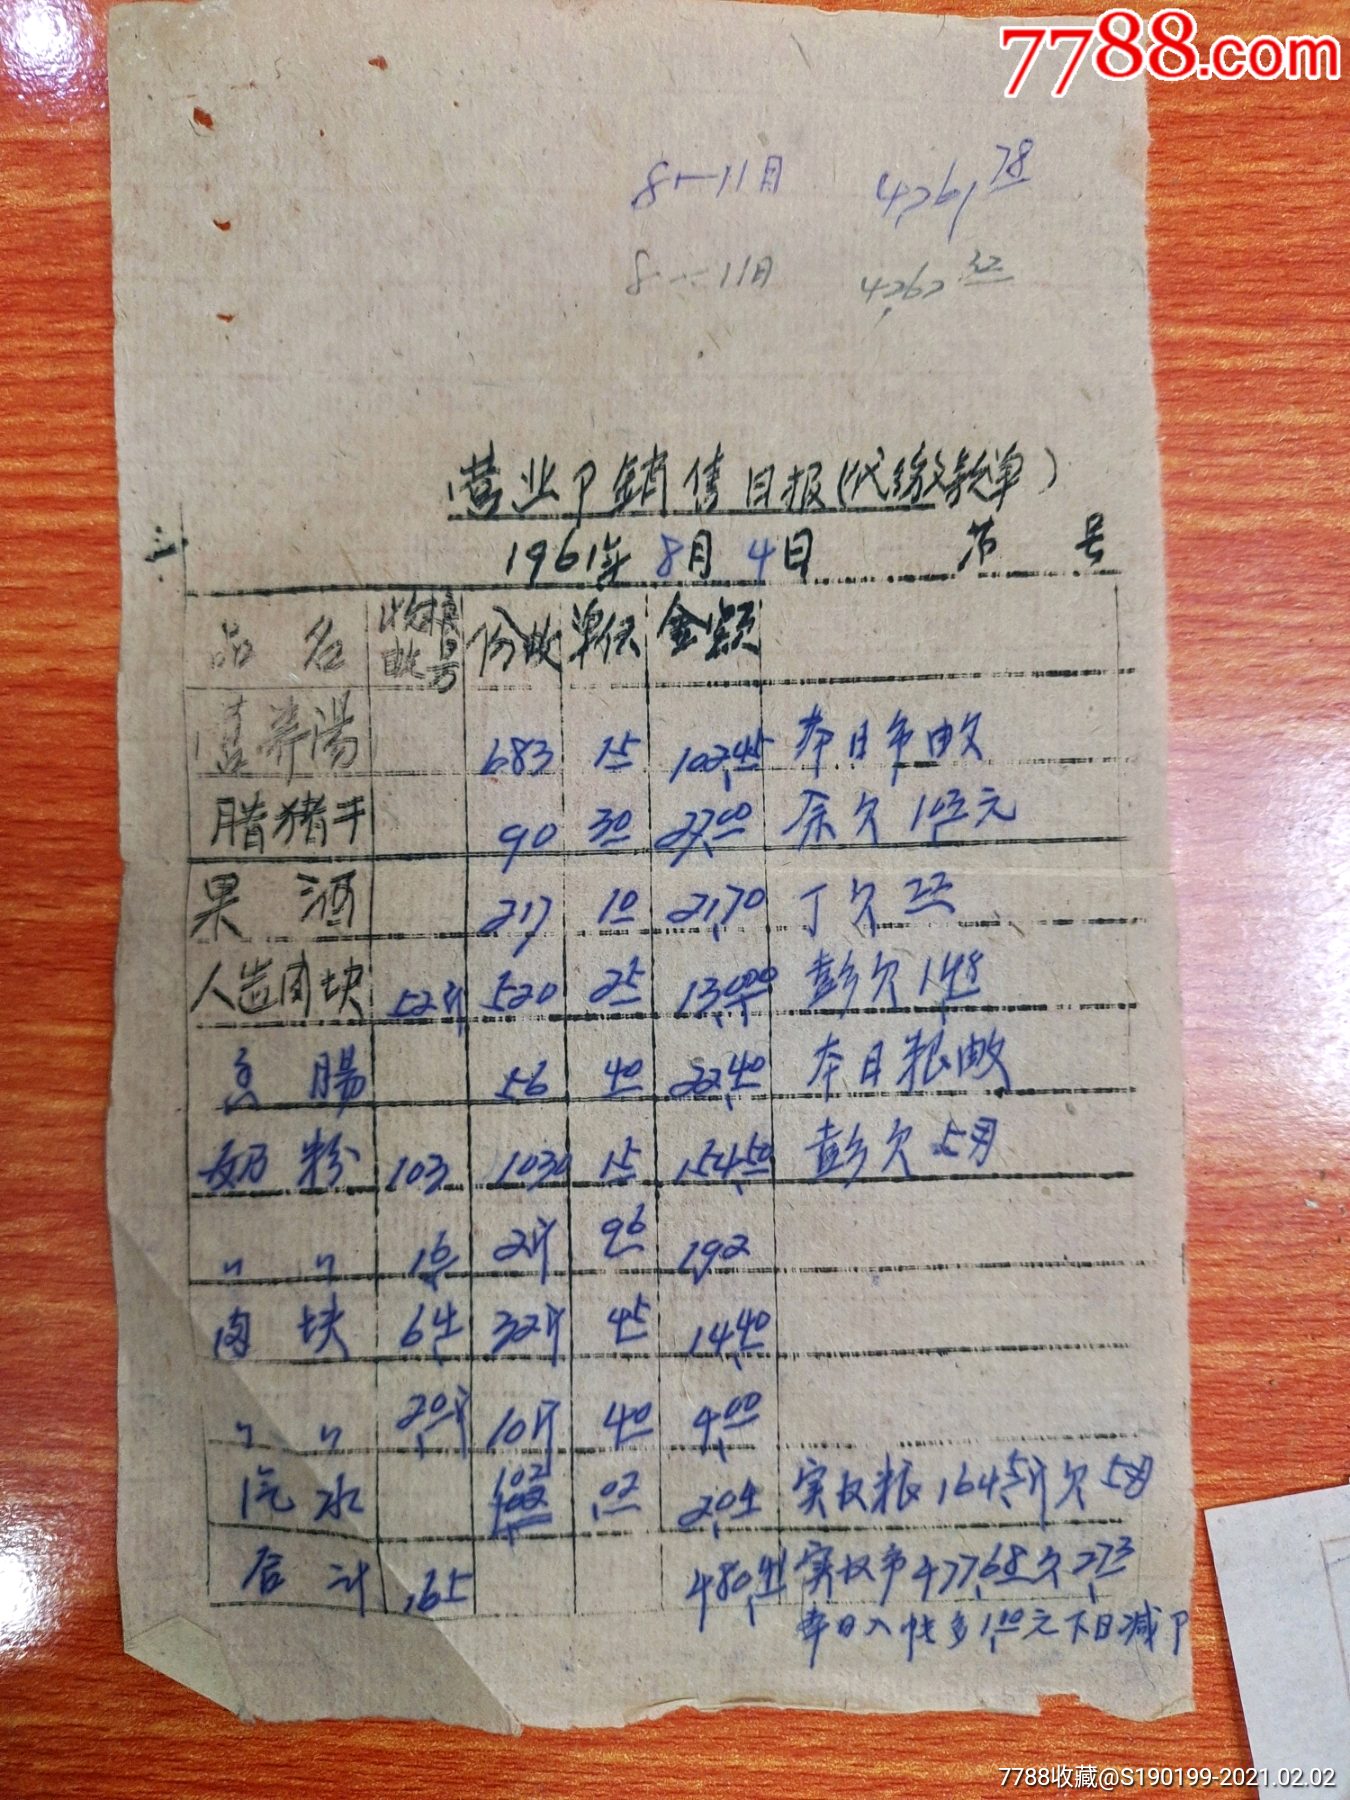 7788.com
8—11月 4,261.78
8—11月 4,262.32
营业卩销售日报(代缴款单)
1961年8月4日 号
品名 份数 单价 金额
湯 683 15 102.45 本日币
腊猪干 90 30 27.00 余欠1.03元
果酒 217 10 21.70 丁欠22
人造肉块 52斤 520 25 130.00 彭欠1.48
腸 56 40 22.40 本日粮
奶粉 103 1030 15 154.50 彭欠5
〃 〃 16 2斤 96 1.92
肉块 64 32斤 45 14.40
〃 〃 20斤 10斤 40 4.00
汽水 102 .02 2.04 实收粮164.5斤欠5
合计 165 480.41 实收币477.68欠2.73
本日入帐多1.00元下日减卩
7788收藏@S190199-2021.02.02